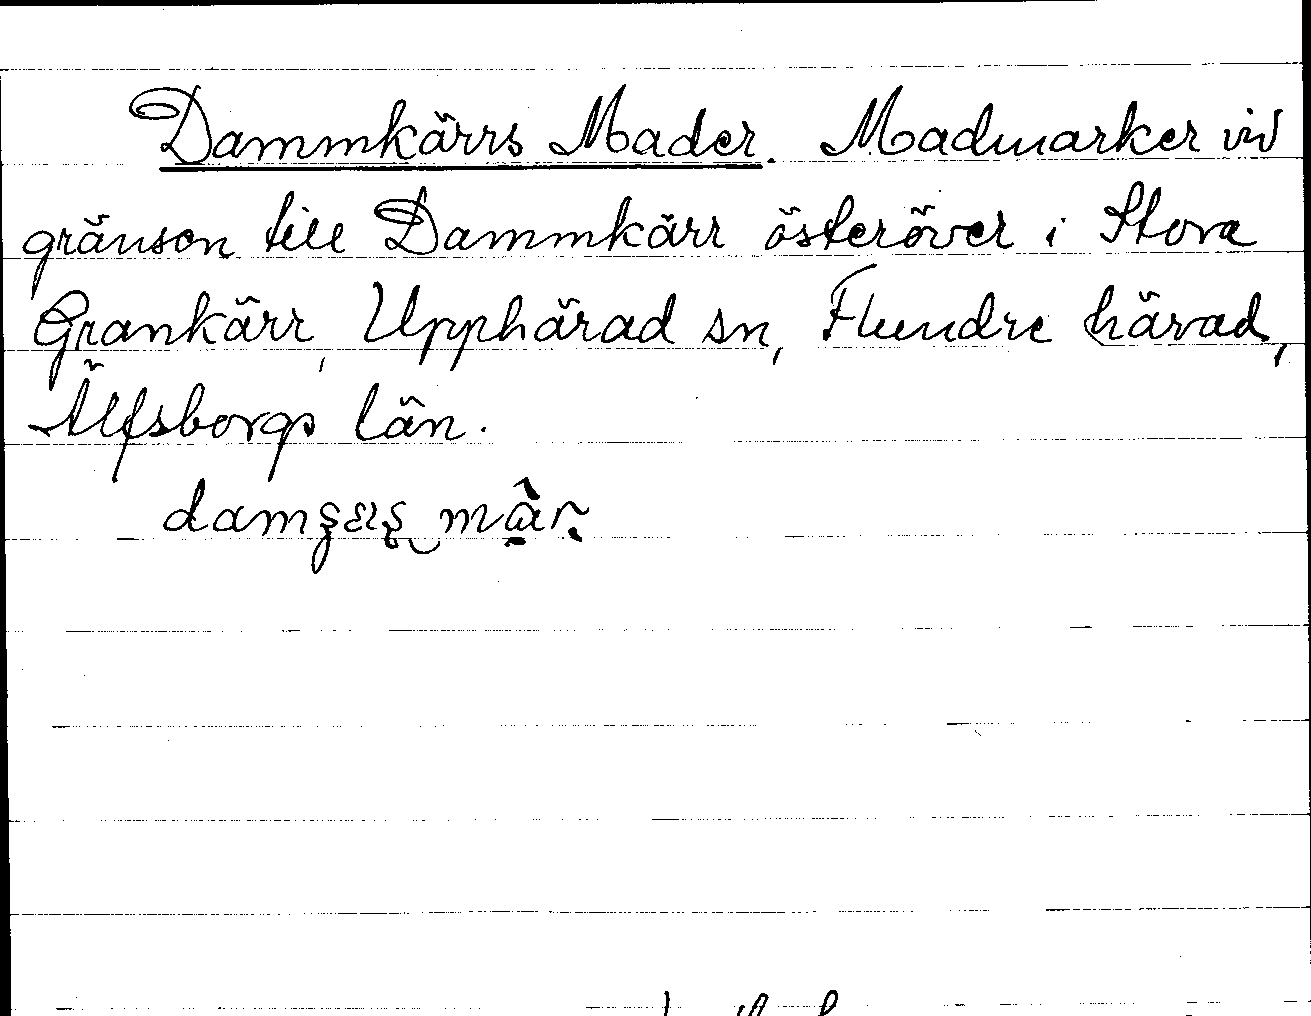 Dammkärrs Mader. Madmarker vid
gränsen till Dammkärr österöver i Stora
Grankärr, Upphärad sn, Flundre härad,
Älfsborgs län.